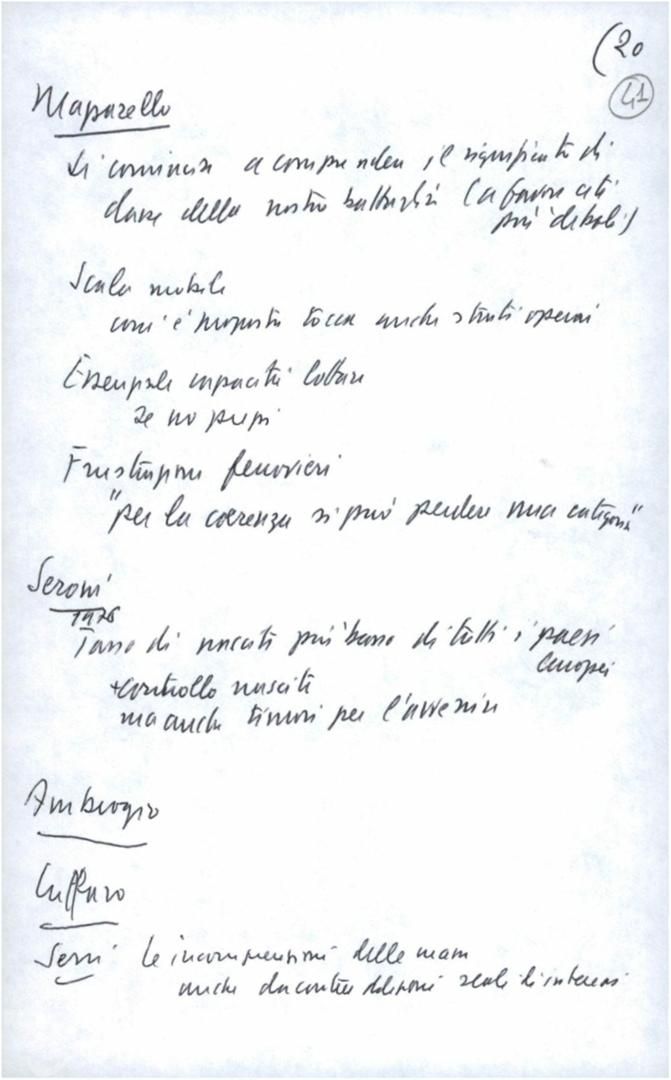 (20
41
Maparello
Si comincia a comprendere il significato di
classe della nostra battaglia (a favore ceti
più deboli)
Scala mobile
com'è proposta tocca anche strati operai
Essenziale capacità lottare
se no
Frustrazione ferrovieri
"per la coerenza si può perdere una categoria"
Seroni
1976
Tasso di nascite più basso di tutti i paesi
europei
+controllo nascite
ma anche timori per l'avvenire
Ambrogio
Cuffaro
Serri le incomprensioni delle masse
anche da contraddizioni reali di interessi